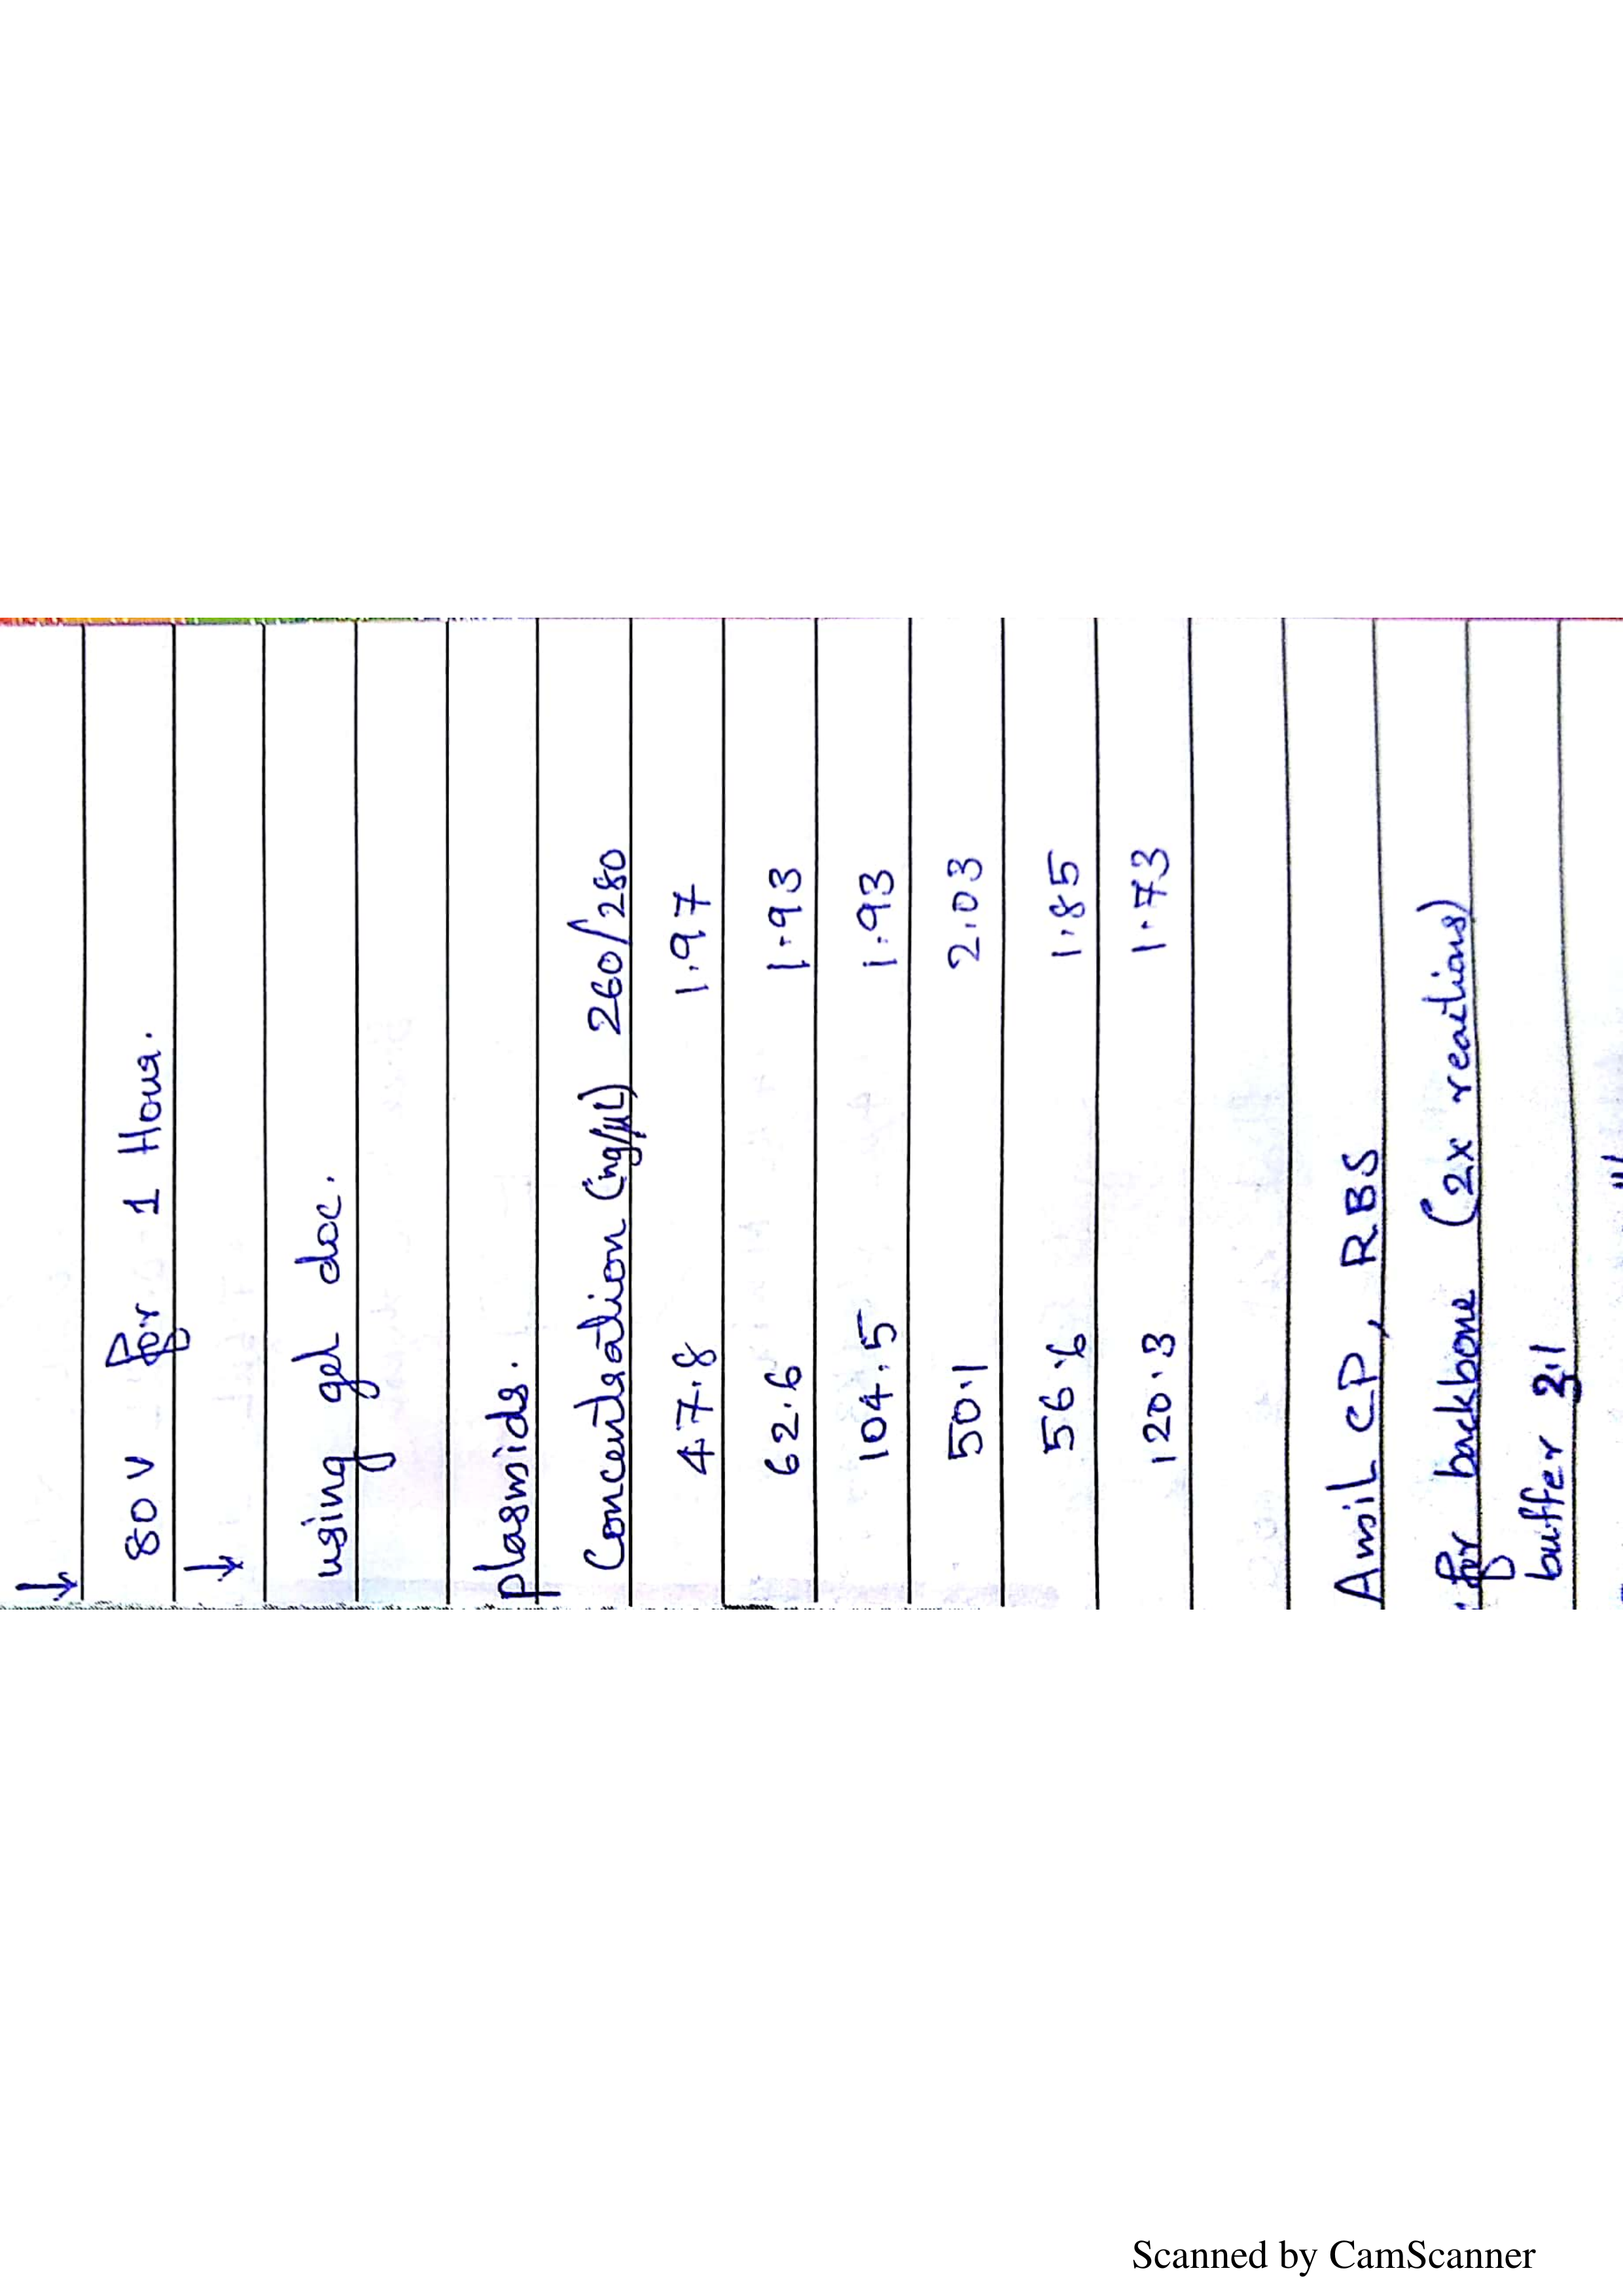 ↓
80 V for 1 Hour.
↓
using gel doc.
plasmids.
Concentration (ng/μL) 260/280
47.8 1.97
62.6 1.93
104.5 1.93
50.1 2.03
56.6 1.85
120.3 1.73
Amil CP, RBS
for backbone (2x reactions)
buffer 2.1
Scanned by CamScanner